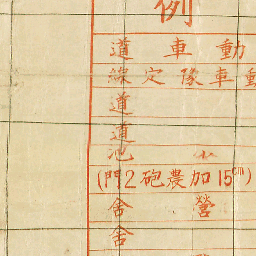 例
動車道
動車豫定線
道
道
池
(15cm加農砲2門)
營舍
舍